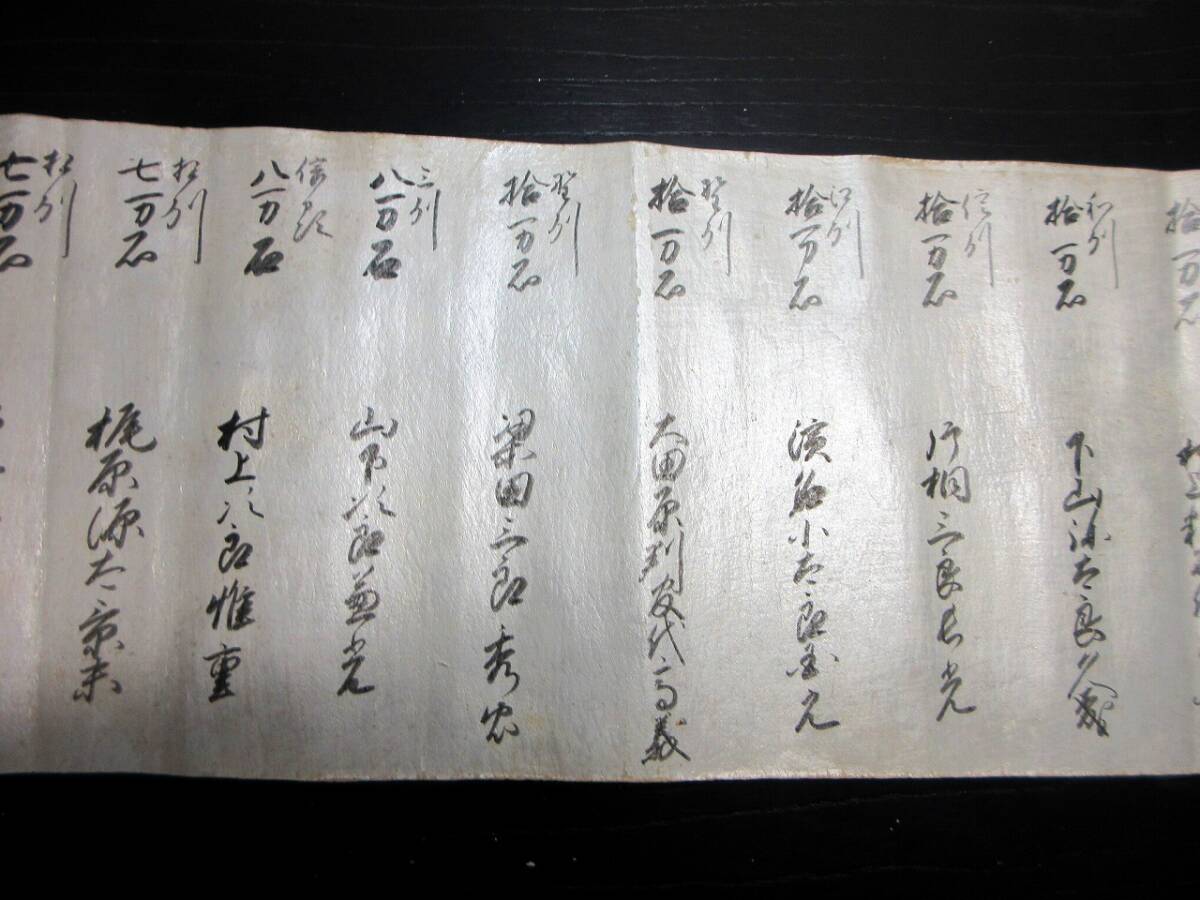 拾一万石
和州
拾一万石
下山弥太良久義
信州
拾一万石
片桐三良長光
江州
拾万石
濱名小太郎国光
野州
拾一万石
大田原判官代高義
野州
拾一万石
梁田三郎秀忠
三州
八一万石
山下次郎兼光
信州
八一万石
村上次郎惟重
相州
七一万石
梶原源太景末
相州
七一万石